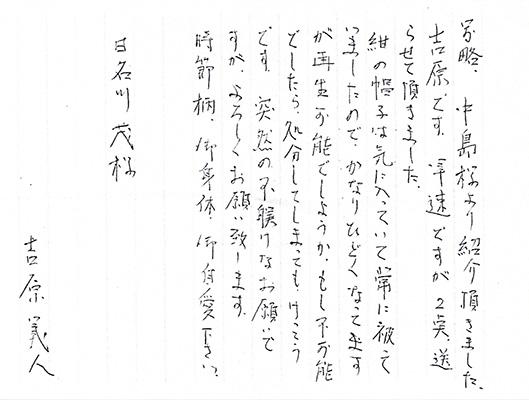 前略、中島様より紹介頂きました、
吉原です。早速ですが2点、送
らせて頂きました。
紺の帽子は気に入っていて常に被って
いましたので、かなりひどくなってます
が再生可能でしょうか。もし不可能
でしたら、処分してしまってもけっこう
です。突然の不躾けなお願いで
すが、よろしくお願い致します。
時節柄、御身体、御自愛下さい。
日名川茂様
吉原義人